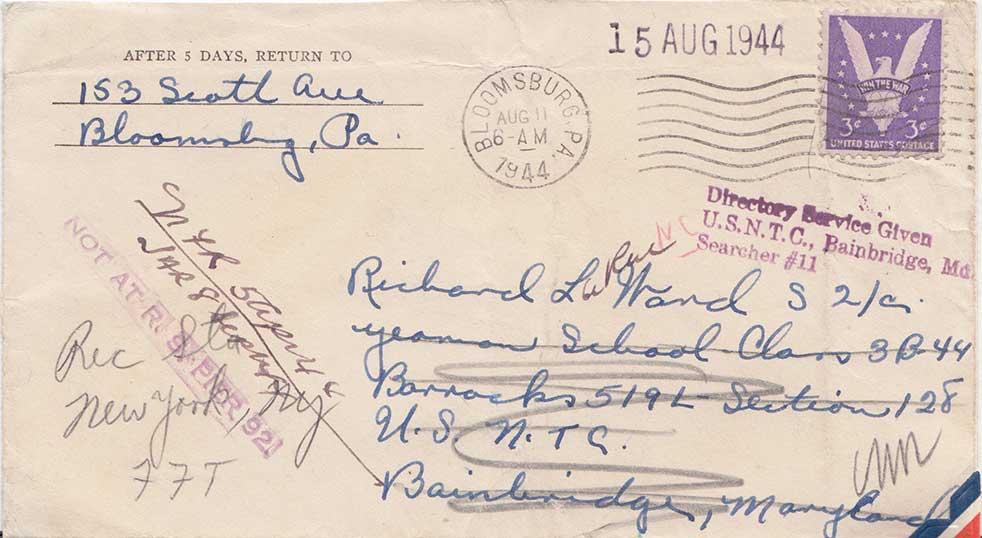 AFTER 5 DAYS, RETURN TO
153 Scott Ave
Bloomsburg, Pa.
BLOOMSBURG, PA.
AUG 11
6-AM
1944
15 AUG 1944
WIN THE WAR
3¢ 3¢
UNITED STATES POSTAGE
Directory Service Given
U.S.N.T.C., Bainbridge, Md.
Searcher #11
NC
Richard LaRue Ward S 2/c
yeoman School Class 3B-44
Barracks 519L Section 128
U.S. N.T.C.
Bainbridge, Maryland
NOT AT R/S PIER 92
Rec Sta
New York, NY
FFT